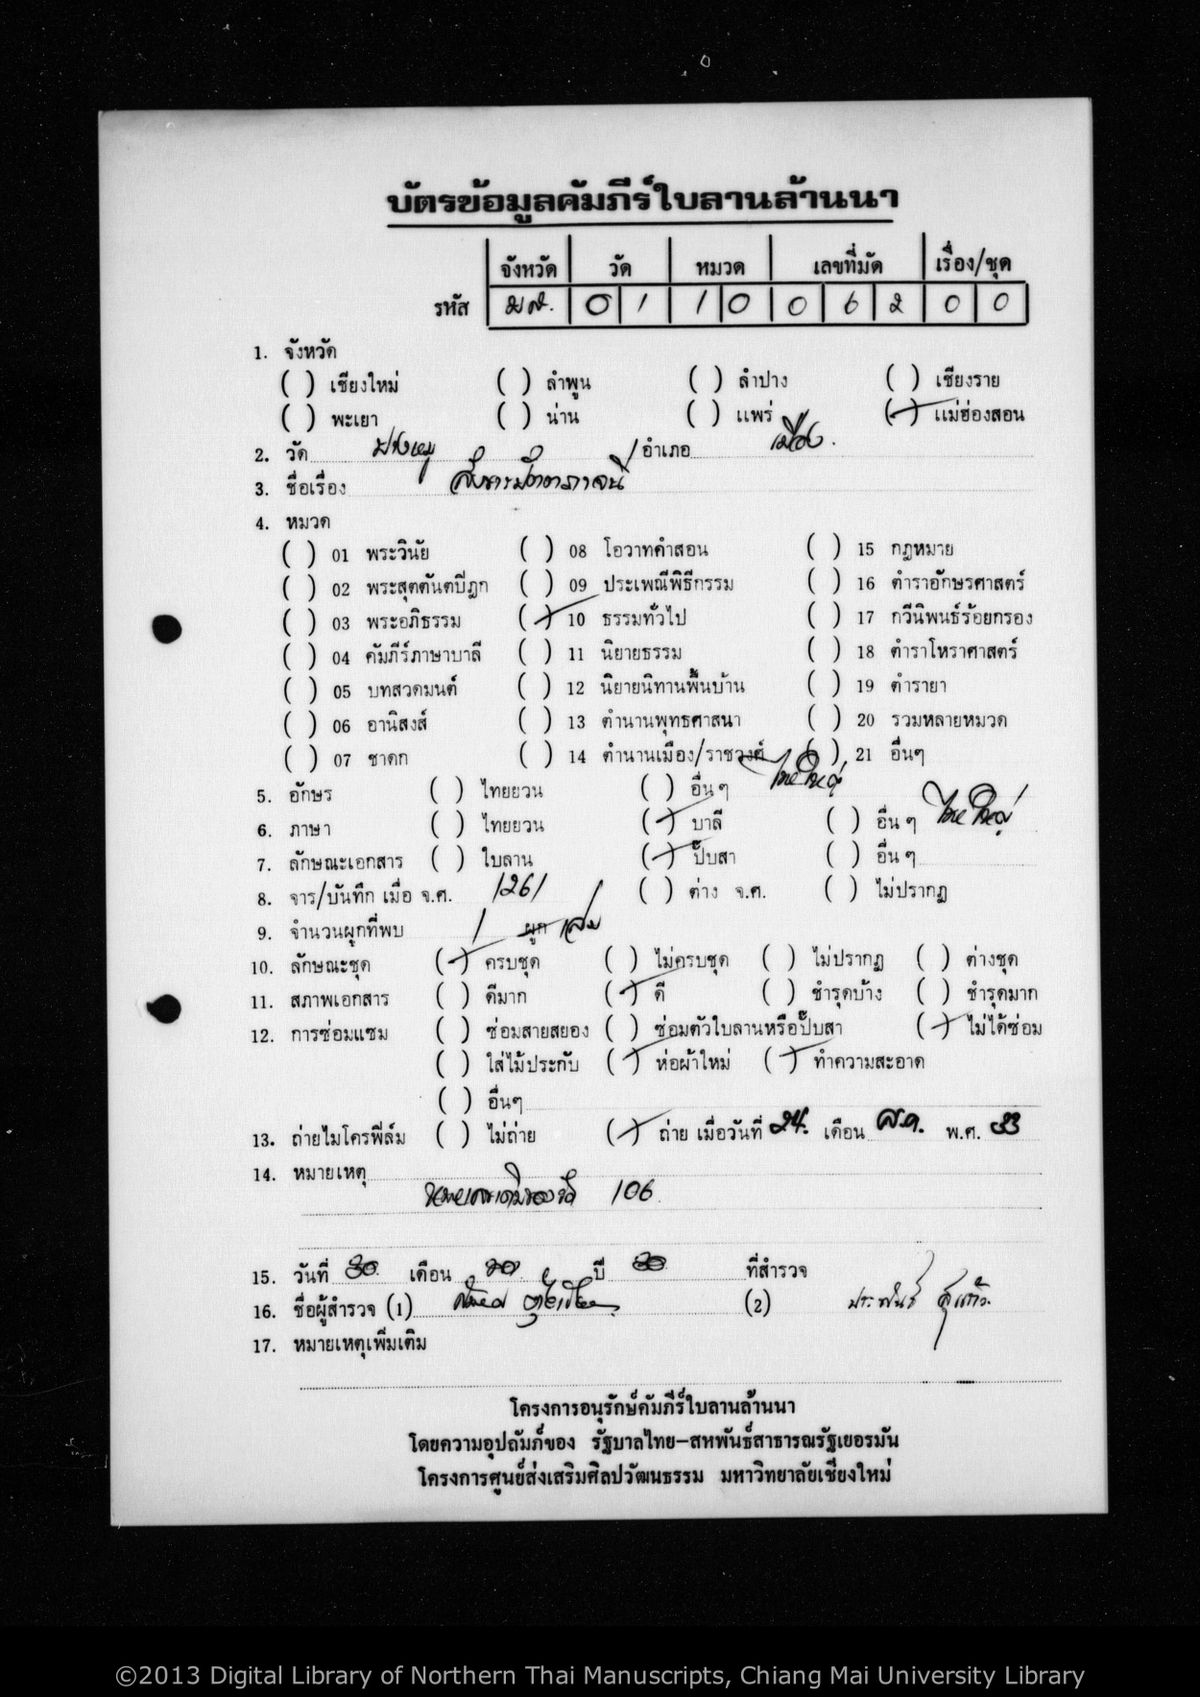 บัตรข้อมูลคัมภีร์ใบลานล้านนา
จังหวัด วัด หมวด เลขที่มัด เรื่อง/ชุด
รหัส มส. 0 1 1 0 0 6 2 0 0
1. จังหวัด
( ) เชียงใหม่ ( ) ลำพูน ( ) ลำปาง ( ) เชียงราย
( ) พะเยา ( ) น่าน ( ) แพร่ ( / ) แม่ฮ่องสอน
2. วัด /อำเภอ เมือง.
3. ชื่อเรื่อง
4. หมวด
( ) 01 พระวินัย ( ) 08 โอวาทคำสอน ( ) 15 กฎหมาย
( ) 02 พระสุตตันตปิฎก ( ) 09 ประเพณีพิธีกรรม ( ) 16 ตำราอักษรศาสตร์
( ) 03 พระอภิธรรม ( / ) 10 ธรรมทั่วไป ( ) 17 กวีนิพนธ์ร้อยกรอง
( ) 04 คัมภีร์ภาษาบาลี ( ) 11 นิยายธรรม ( ) 18 ตำราโหราศาสตร์
( ) 05 บทสวดมนต์ ( ) 12 นิยายนิทานพื้นบ้าน ( ) 19 ตำรายา
( ) 06 อานิสงส์ ( ) 13 ตำนานพุทธศาสนา ( ) 20 รวมหลายหมวด
( ) 07 ชาดก ( ) 14 ตำนานเมือง/ราชวงศ์ ( ) 21 อื่นๆ
5. อักษร ( ) ไทยยวน ( ) อื่น ๆ ไทยใหญ่
6. ภาษา ( ) ไทยยวน ( / ) บาลี ( ) อื่น ๆ ไทยใหญ่
7. ลักษณะเอกสาร ( ) ใบลาน ( / ) ปั๊บสา ( ) อื่น ๆ
8. จาร/บันทึก เมื่อ จ.ศ. 1261 ( ) ต่าง จ.ศ. ( ) ไม่ปรากฏ
9. จำนวนผูกที่พบ 1 ผูก เล่ม
10. ลักษณะชุด ( / ) ครบชุด ( ) ไม่ครบชุด ( ) ไม่ปรากฏ ( ) ต่างชุด
11. สภาพเอกสาร ( ) ดีมาก ( / ) ดี ( ) ชำรุดบ้าง ( ) ชำรุดมาก
12. การซ่อมแซม ( ) ซ่อมสายสยอง ( ) ซ่อมตัวใบลานหรือปั๊บสา ( / ) ไม่ได้ซ่อม
( ) ใส่ไม้ประกับ ( / ) ห่อผ้าใหม่ ( / ) ทำความสะอาด
( ) อื่นๆ
13. ถ่ายไมโครฟิล์ม ( ) ไม่ถ่าย ( / ) ถ่าย เมื่อวันที่ 24. เดือน ส.ค. พ.ศ. 33
14. หมายเหตุ
หมายเลขเดิมของวัด 106
15. วันที่ 30 เดือน ปี 30 ที่สำรวจ
16. ชื่อผู้สำรวจ (1) (2) ประพันธ์ สุแก้ว.
17. หมายเหตุเพิ่มเติม
โครงการอนุรักษ์คัมภีร์ใบลานล้านนา
โดยความอุปถัมภ์ของ รัฐบาลไทย-สหพันธ์สาธารณรัฐเยอรมัน
โครงการศูนย์ส่งเสริมศิลปวัฒนธรรม มหาวิทยาลัยเชียงใหม่
©2013 Digital Library of Northern Thai Manuscripts, Chiang Mai University Library